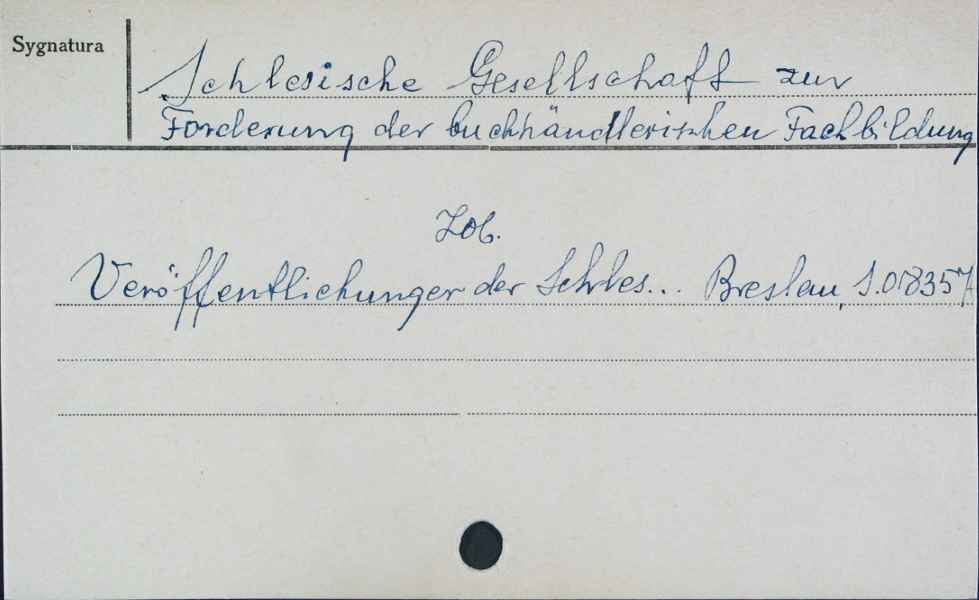 Sygnatura
Schlesische Gesellschaft zur
Forderung der buchhändlerischen Fachbildung
Zob.
Veröffentlichungen der Schles... Breslau, S.018357